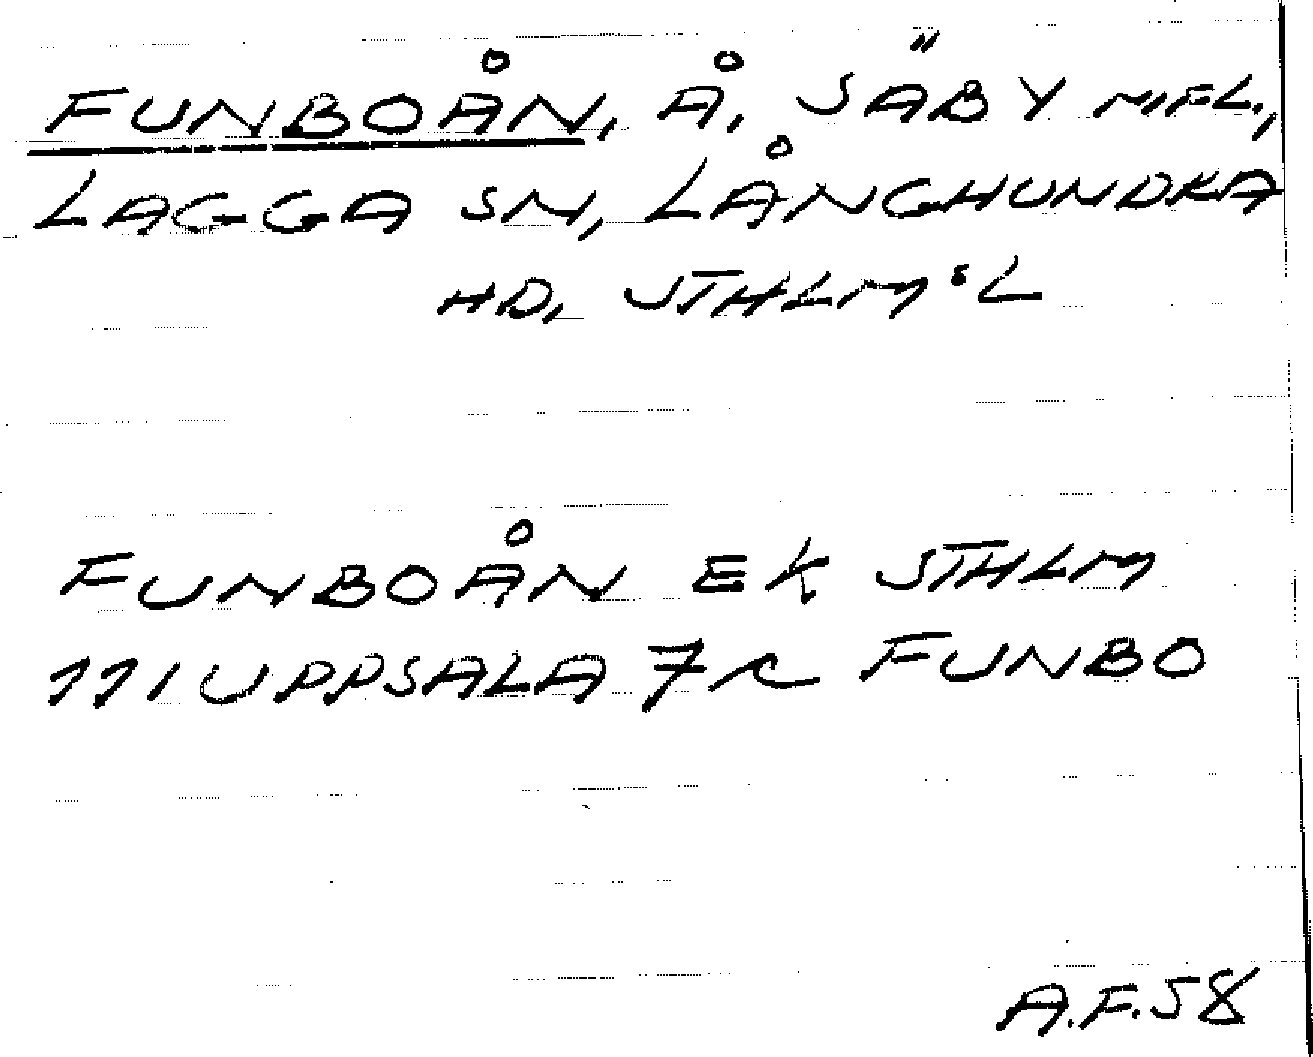 FUNBOÅN, Å, SÄBY M.FL.,
LAGGA SN, LÅNGHUNDRA
HD, STHLM:S L
FUNBOÅN EK STHLM
111 UPPSALA 7 c FUNBO
A.F. 58